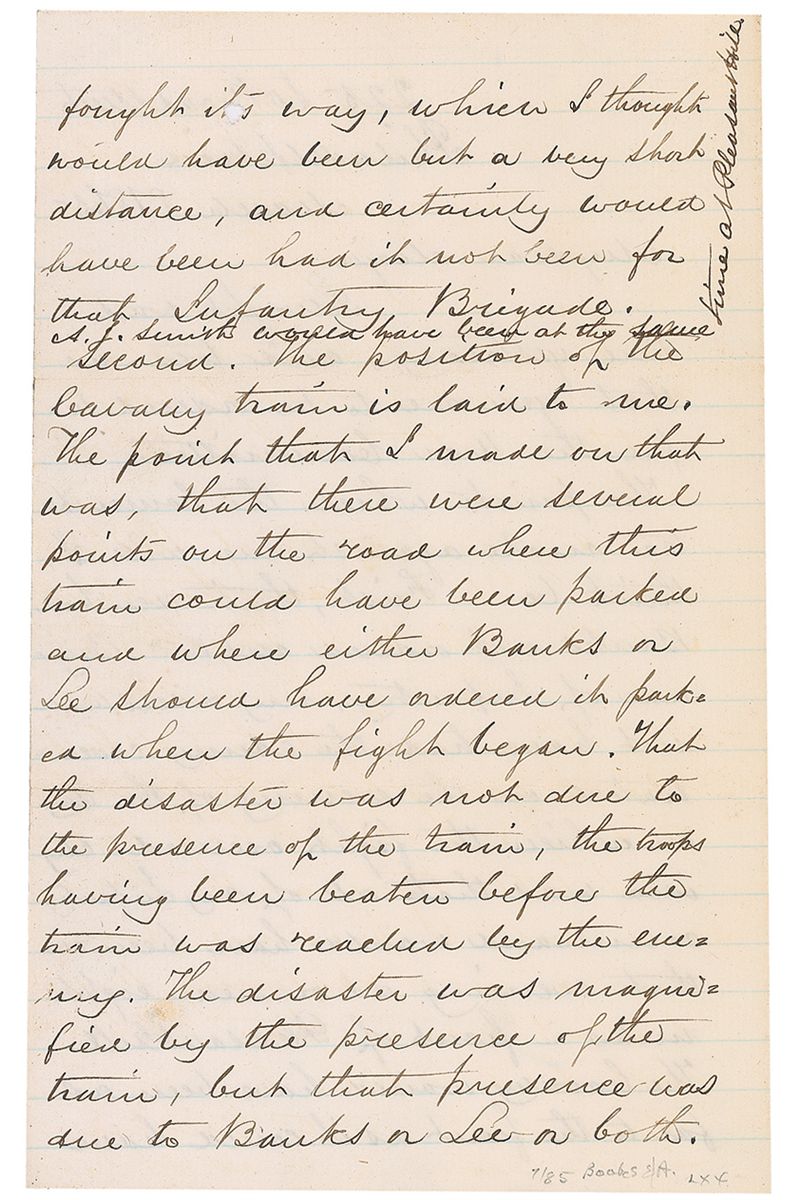 fought it's way, which I thought
would have been but a very short
distance, and certainly would
have been had it not been for
that Infantry Brigade.
A. J. Smith would have been at the same
time at Pleasant Hill
Second. The position of the
Cavalry train is laid to me.
The point that I made on that
was, that there were several
points on the road where this
train could have been parked
and where either Banks or
Lee should have ordered it park=
ed when the fight began. That
the disaster was not due to
the presence of the train, the troops
having been beaten before the
train was reached by the ene=
my. The disaster was magni=
fied by the presence of the
train, but that presence was
due to Banks or Lee or both.
7/85 Books & A.